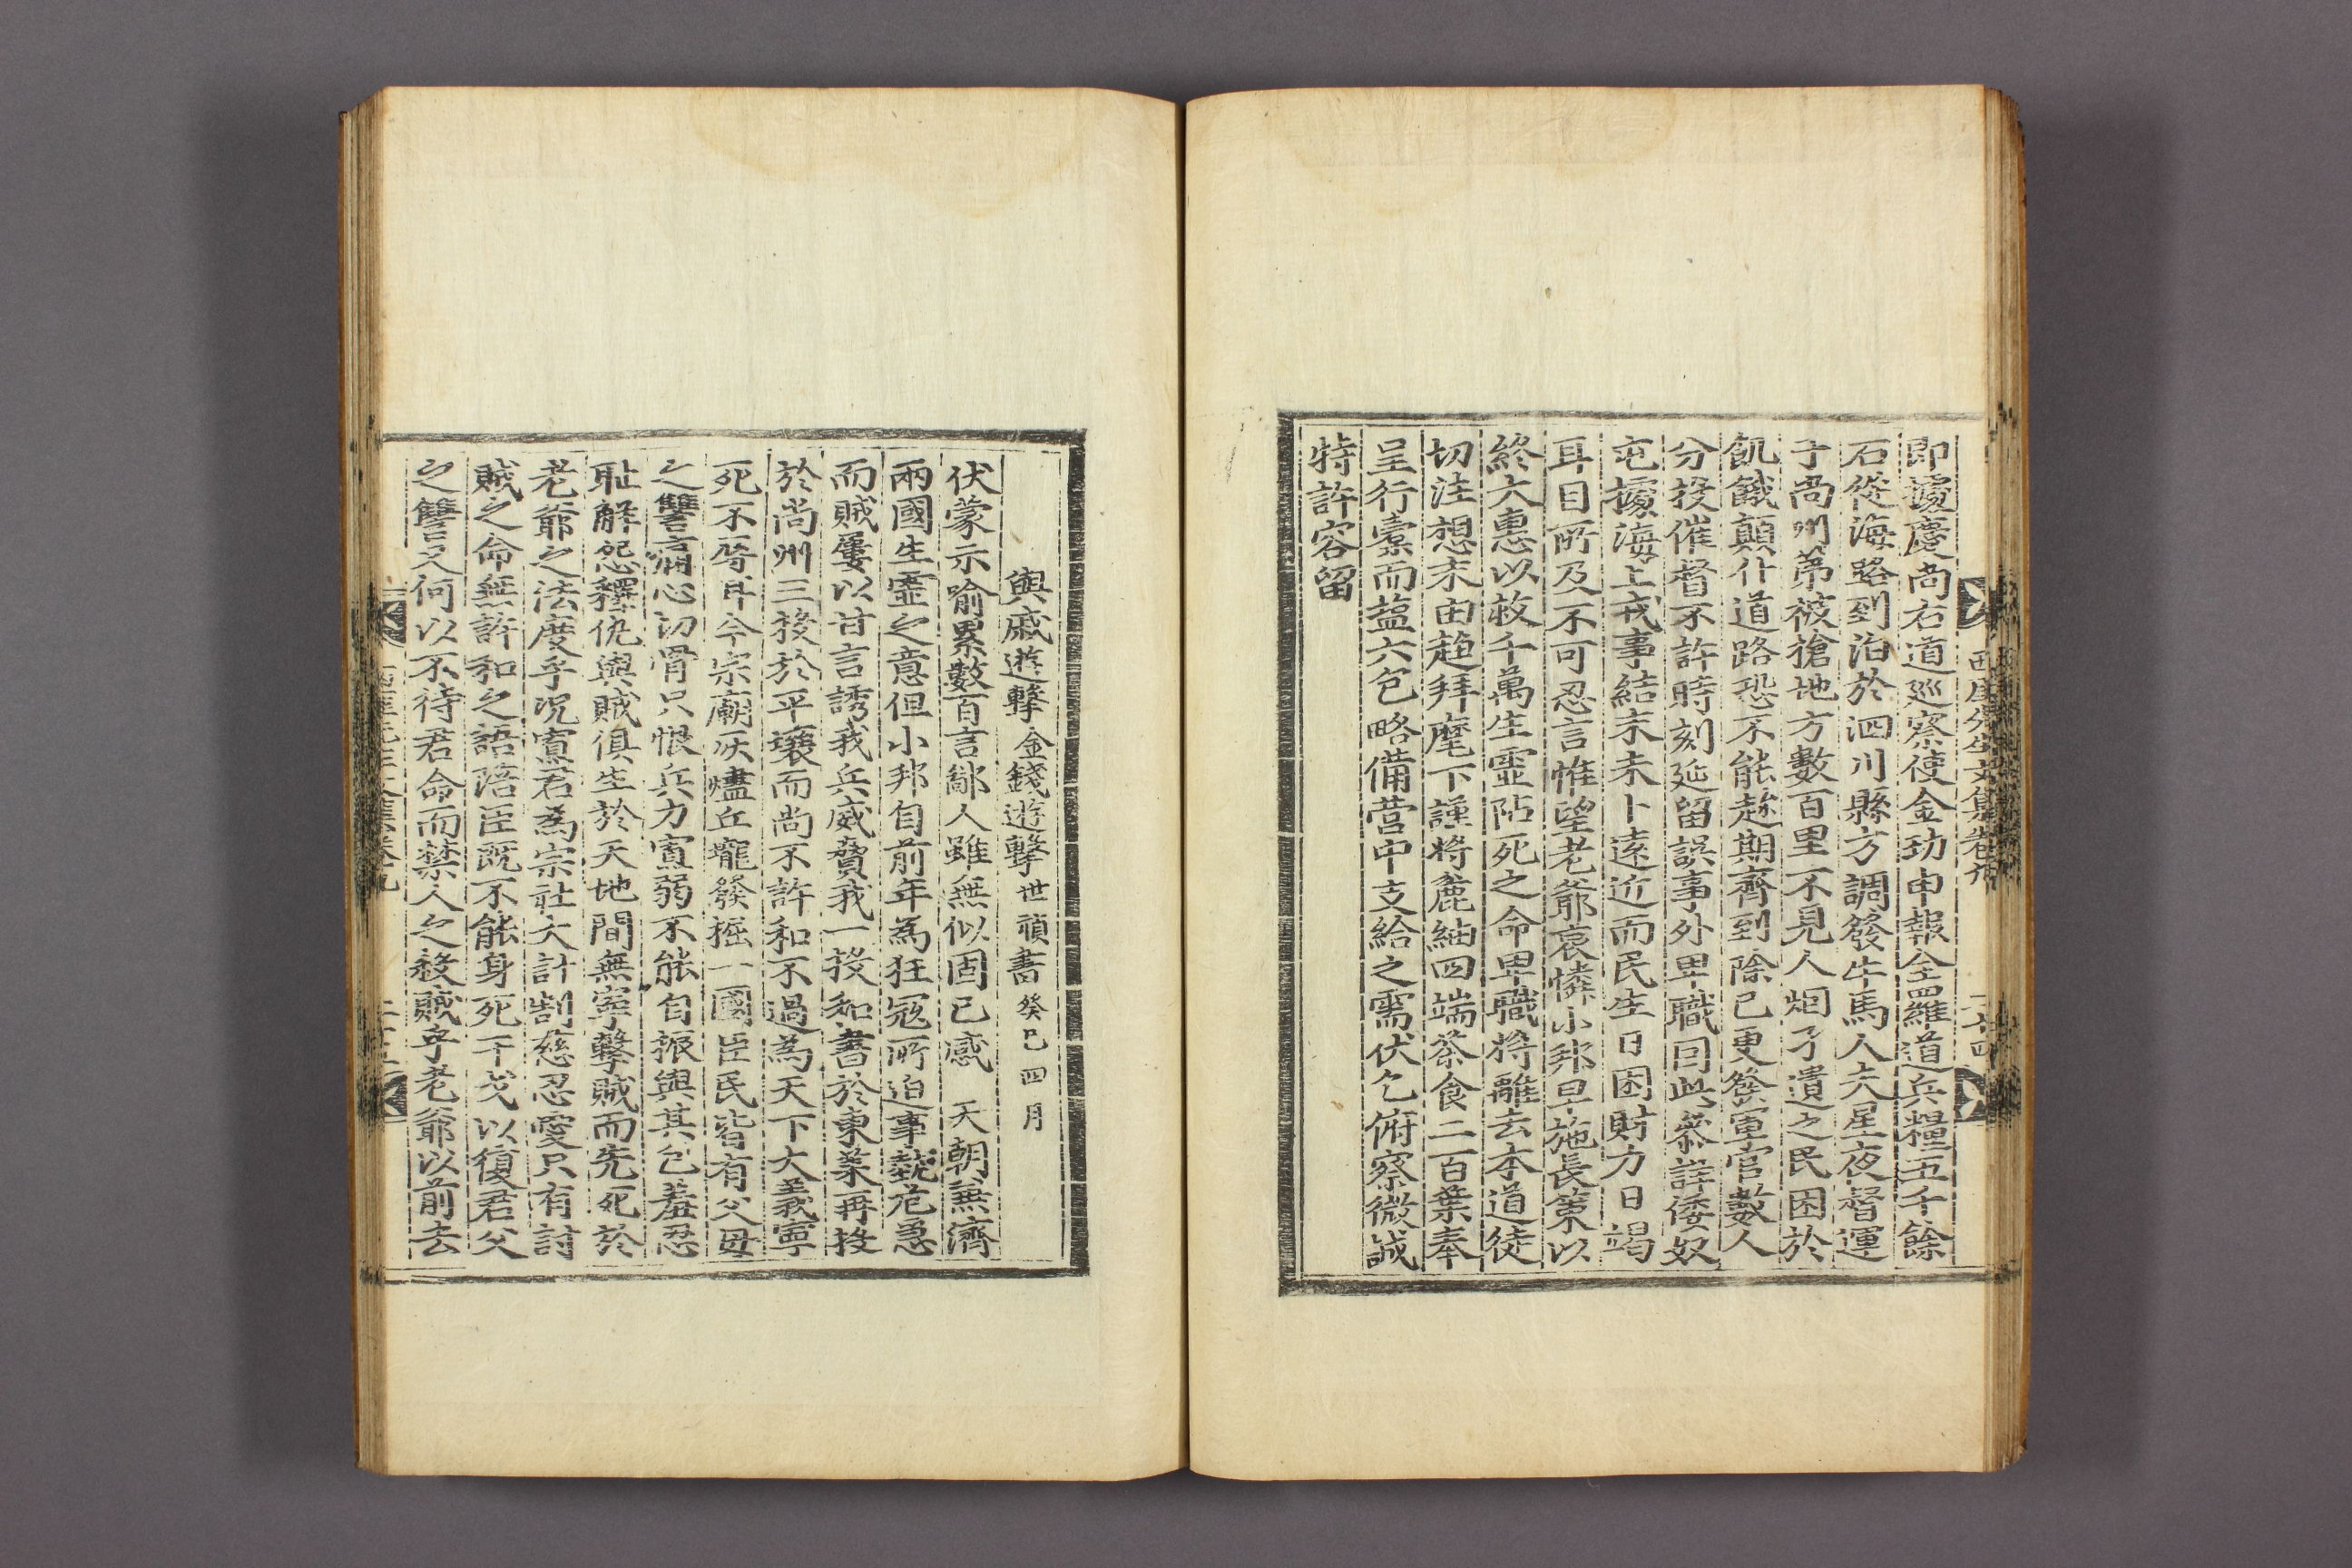 西厓先生文集卷九
二十四
即據慶尙右道巡察使金功申報全羅道兵糧五千餘
石從海路到泊於泗川縣方調發牛馬人夫星夜督運
于尙州第被搶地方數百里不見人烟孑遺之民困於
飢餓顚仆道路恐不能趂期齊到除已更發軍官數人
分投催督不許時刻延留誤事外卑職回此叅詳倭奴
屯據海上戎事結末未卜遠近而民生日困財力日竭
耳目所及不可忍言惟望老爺哀憐小邦早施長策以
終大惠以救千萬生靈阽死之命卑職將離去本道徒
切注想末由趍拜麾下謹將麄紬四端茶食二百葉奉
呈行橐而藍六包略備營中支給之需伏乞俯察微誠
特許容留
與戚遊擊金錢遊擊世禎書癸巳四月
伏蒙示喩累數百言鄙人雖無似固已感 天朝兼濟
兩國生靈之意但小邦自前年爲狂寇所迫事勢危急
而賊屢以甘言誘我兵威脅我一投和書於東萊再投
於尙州三投於平壤而尙不許和不過爲天下大義寧
死不辱耳今宗廟灰燼丘壠發掘一國臣民皆有父母
之讐痛心切骨只恨兵力寡弱不能自振與其包羞忍
耻解怨釋仇與賊俱生於天地間無寧擊賊而先死於
老爺之法度乎况寡君爲宗社大計割慈忍愛只有討
賊之命無許和之語陪臣旣不能身死干戈以復君父
之讐又何以不待君命而禁人之殺賊乎老爺以前去
西厓先生文集卷九